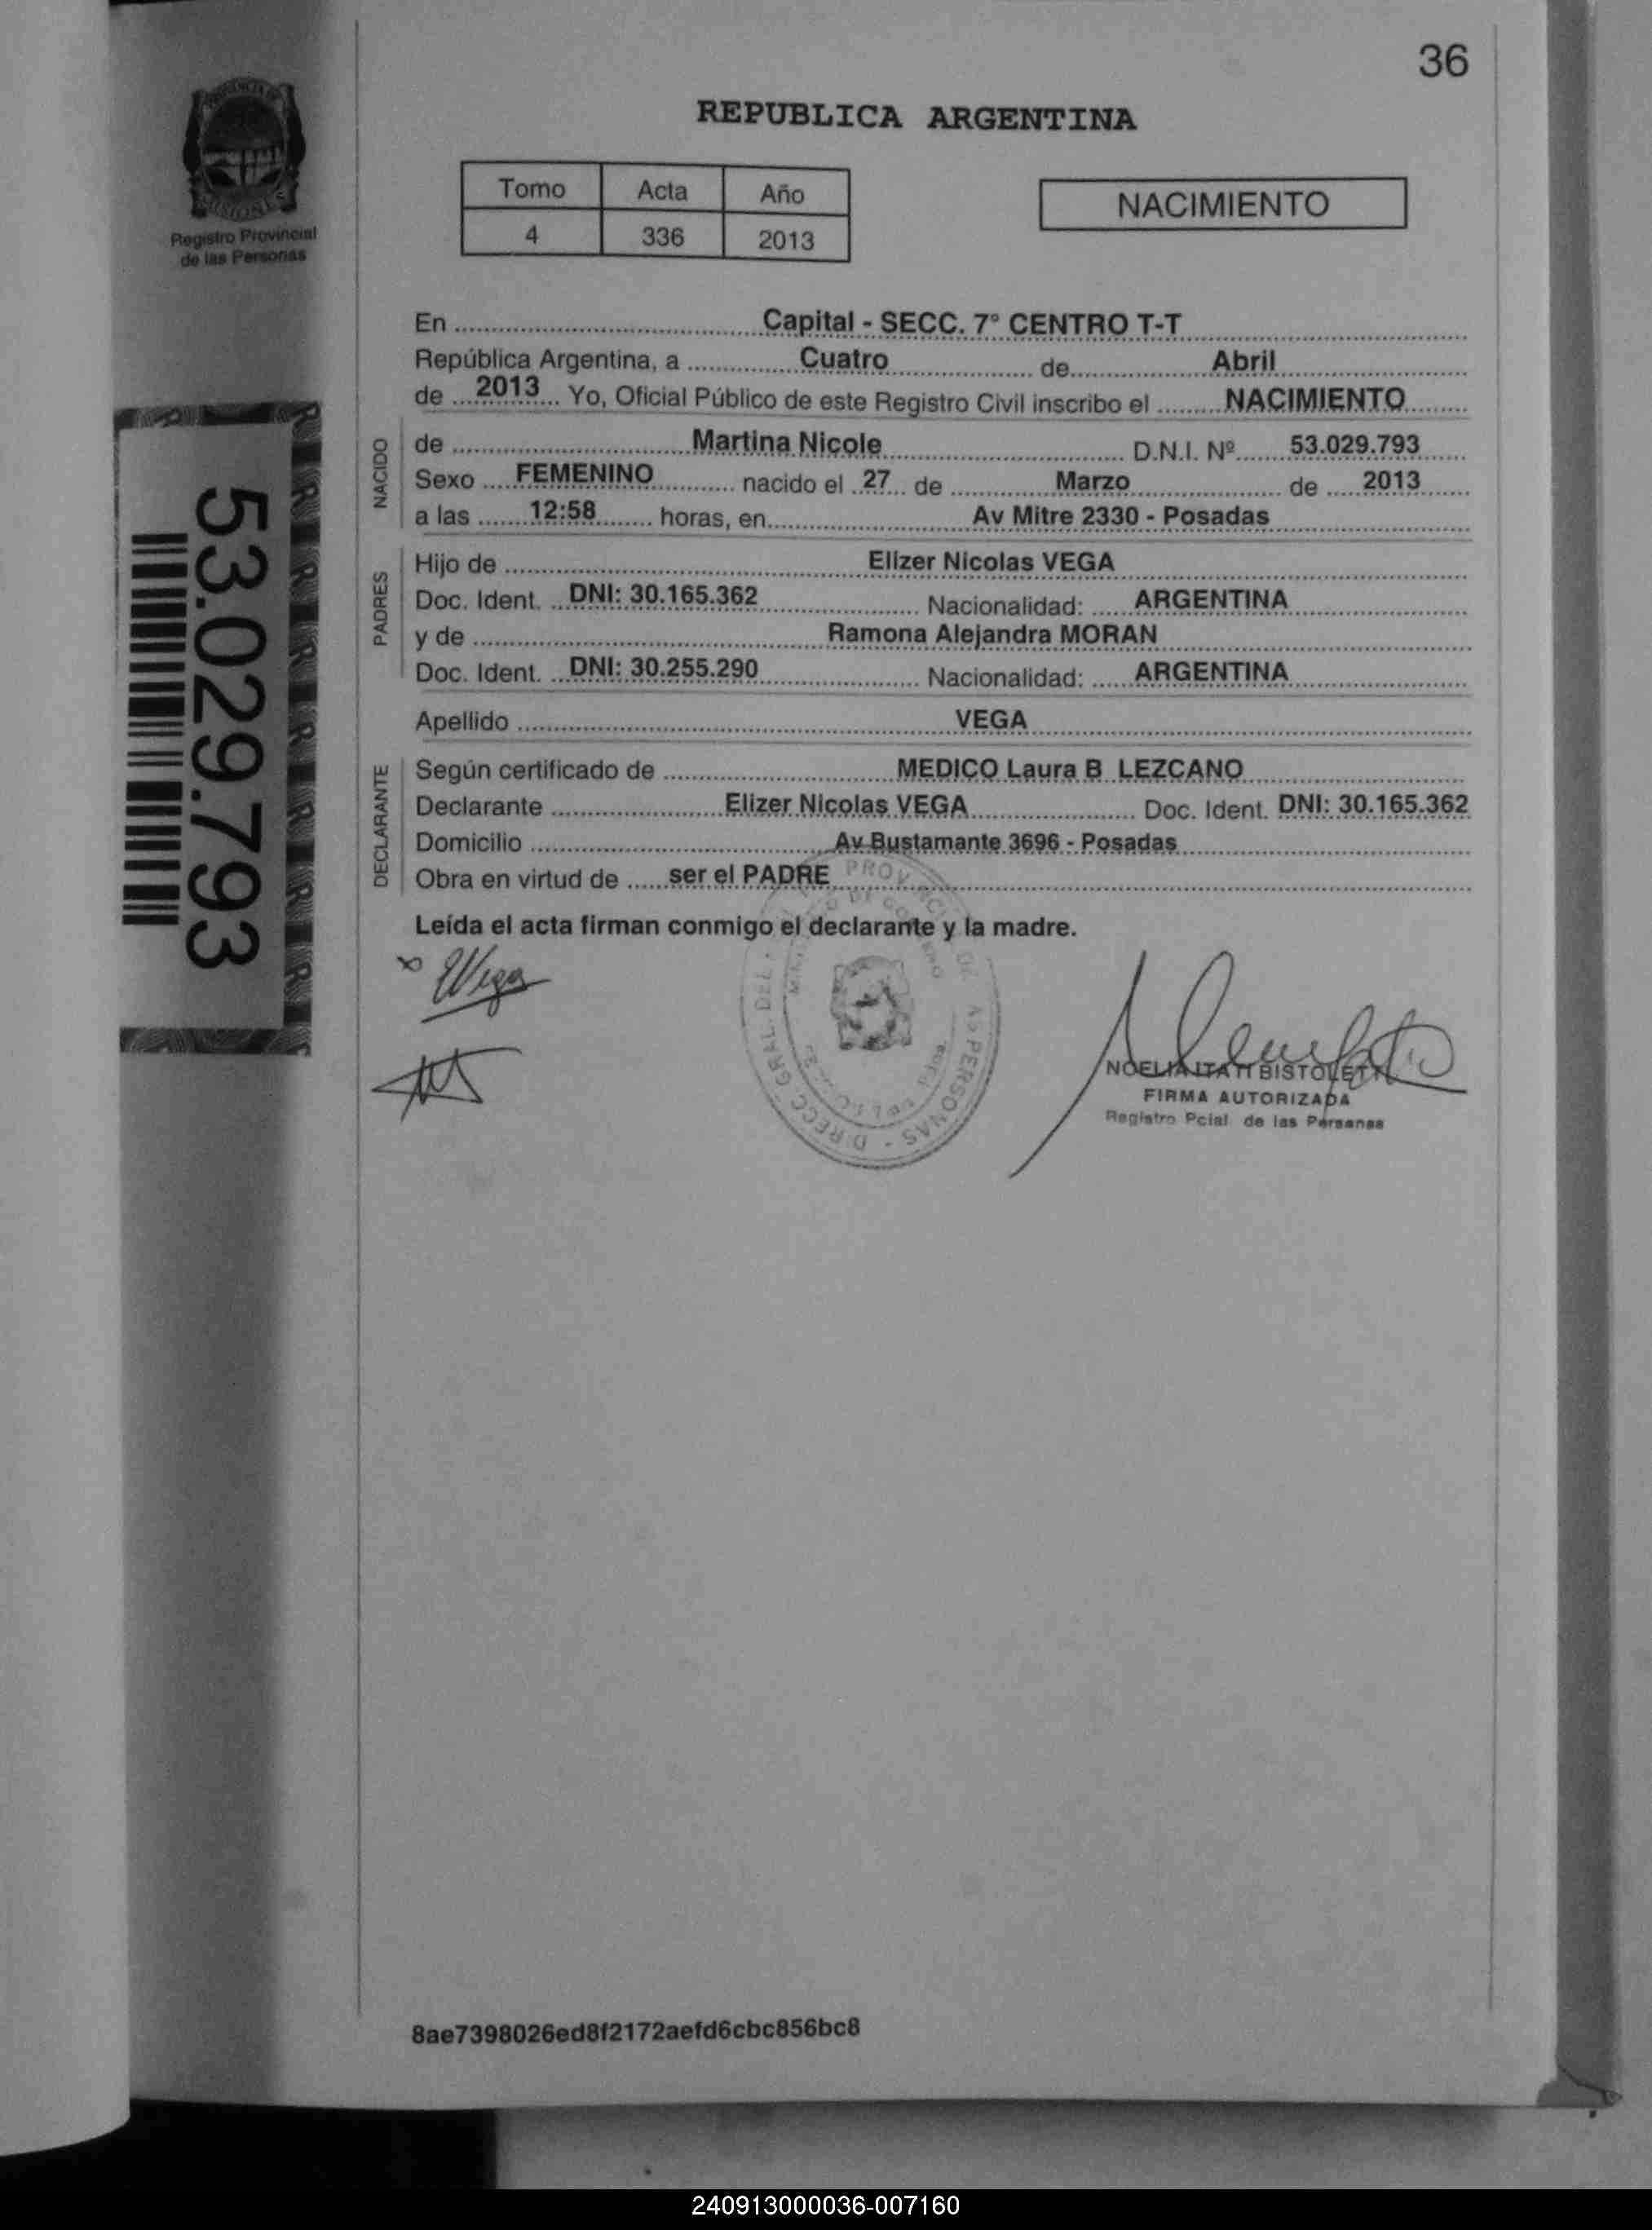 36
REPUBLICA ARGENTINA
Registro Provincial
de las Personas
Tomo Acta Año
4 336 2013
NACIMIENTO
En Capital - SECC. 7° CENTRO T-T
República Argentina, a Cuatro de Abril
de 2013 Yo, Oficial Público de este Registro Civil inscribo el NACIMIENTO
NACIDO
de Martina Nicole D.N.I. Nº 53.029.793
Sexo FEMENINO nacido el 27 de Marzo de 2013
a las 12:58 horas, en Av Mitre 2330 - Posadas
PADRES
Hijo de Elizer Nicolas VEGA
Doc. Ident. DNI: 30.165.362 Nacionalidad: ARGENTINA
y de Ramona Alejandra MORAN
Doc. Ident. DNI: 30.255.290 Nacionalidad: ARGENTINA
Apellido VEGA
DECLARANTE
Según certificado de MEDICO Laura B LEZCANO
Declarante Elizer Nicolas VEGA Doc. Ident. DNI: 30.165.362
Domicilio Av Bustamante 3696 - Posadas
Obra en virtud de ser el PADRE
Leída el acta firman conmigo el declarante y la madre.
53.029.793
Vega
NOELIA ITATI BISTOLETTI
FIRMA AUTORIZADA
Registro Pcial de las Personas
8ae7398026ed8f2172aefd6cbc856bc8
240913000036-007160